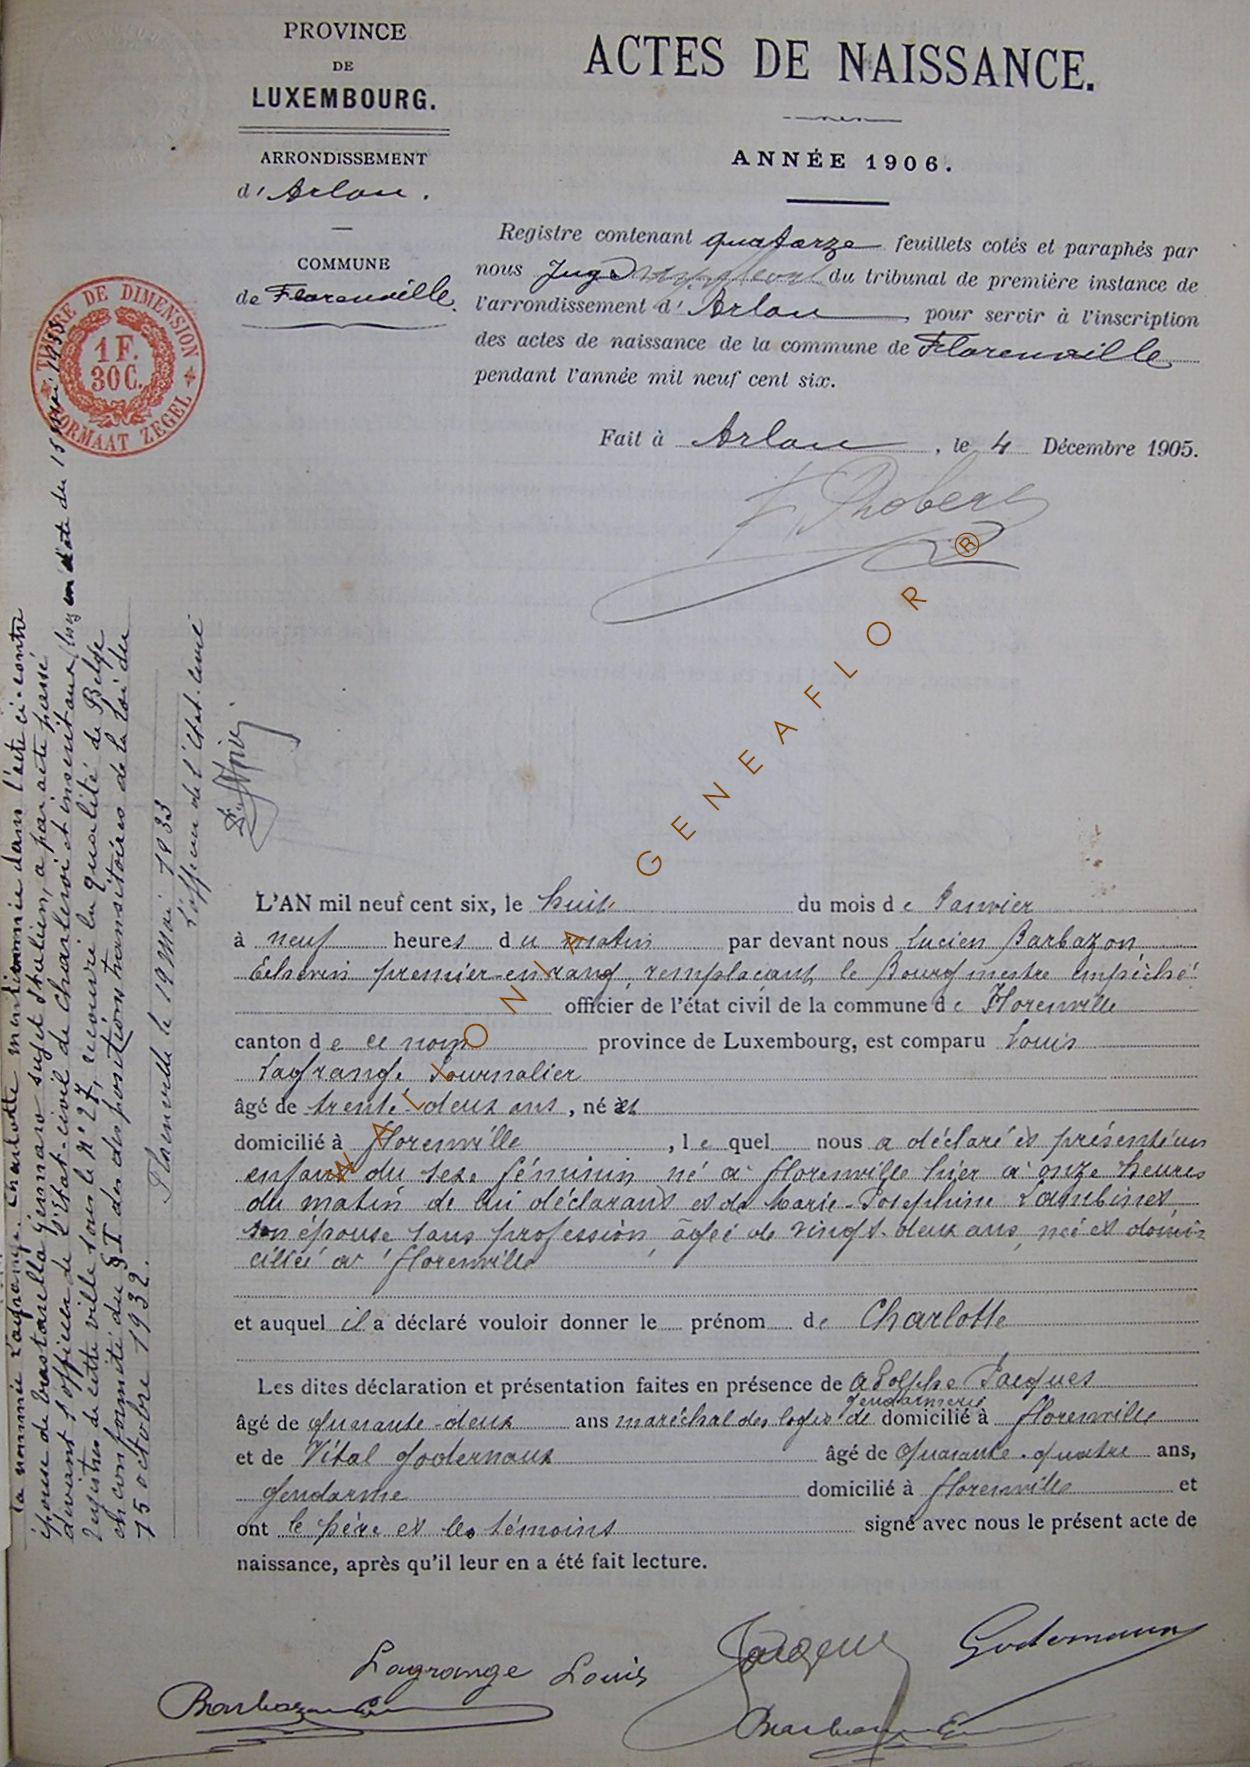 PROVINCE
DE
LUXEMBOURG.
ARRONDISSEMENT
d'Arlon.
COMMUNE
de Florenville.
TIMBRE DE DIMENSION
1 F.
30 C.
FORMAAT ZEGEL
ACTES DE NAISSANCE.
ANNÉE 1906.
Registre contenant quatorze feuillets cotés et paraphés par
nous Juge du tribunal de première instance de
l'arrondissement d'Arlon, pour servir à l'inscription
des actes de naissance de la commune de Florenville
pendant l'année mil neuf cent six.
Fait à Arlon, le 4 Décembre 1905.
la nommée Lagrange Charlotte mentionnée dans l'acte ci-contre
épouse de gennaro sujet Italien, a par acte passé
devant l'officier de l'état-civil de charleroi et inscrit aux en date du 15 mai 1933
registres de cette ville sous le N° 27, recouvré la qualité de Belge
en conformité du § I des dispositions transitoires de la loi du
15 octobre 1932.
Florenville le 19 Mai 1933
L'officier de l'état-civil
L'AN mil neuf cent six, le huit du mois de Janvier
à neuf heures du matin par devant nous Lucien Barbazon
Echevin premier en rang, remplaçant le Bourgmestre empêché
officier de l'état civil de la commune de Florenville
canton de ce nom province de Luxembourg, est comparu Louis
Lagrange Journalier
âgé de trente-deux ans, né et
domicilié à florenville, lequel nous a déclaré et présenté un
enfant du sexe féminin né à florenville hier à onze heures
du matin de lui déclarant et de Marie-Joséphine Lambinet
son épouse sans profession, âgée de vingt-deux ans, née et domi-
ciliée à florenville
et auquel il a déclaré vouloir donner le prénom de Charlotte
Les dites déclaration et présentation faites en présence de Adolphe Jacques
gendarmerie
âgé de quarante-deux ans maréchal des logis de domicilié à florenville
et de Vital Godernaux âgé de quarante-quatre ans,
gendarme domicilié à florenville et
ont le père et les témoins signé avec nous le présent acte de
naissance, après qu'il leur en a été fait lecture.
Lagrange Louis
WALLONIA GENEAFLOR ®